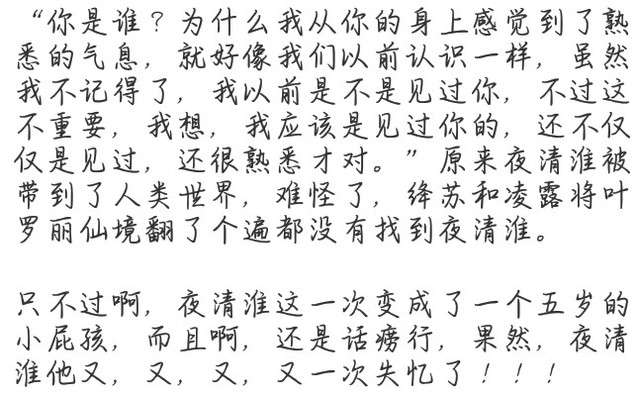 “你是谁？为什么我从你的身上感觉到了熟
悉的气息，就好像我们以前认识一样，虽然
我不记得了，我以前是不是见过你，不过这
不重要，我想，我应该是见过你的，还不仅
仅是见过，还很熟悉才对。”原来夜清淮被
带到了人类世界，难怪了，绛苏和凌露将叶
罗丽仙境翻了个遍都没有找到夜清淮。
只不过啊，夜清淮这一次变成了一个五岁的
小屁孩，而且啊，还是话痨行，果然，夜清
淮他又，又，又，又一次失忆了！！！